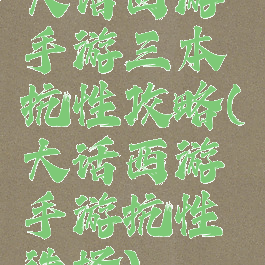 大话西游
手游三本
抗性攻略(
大话西游
手游抗性